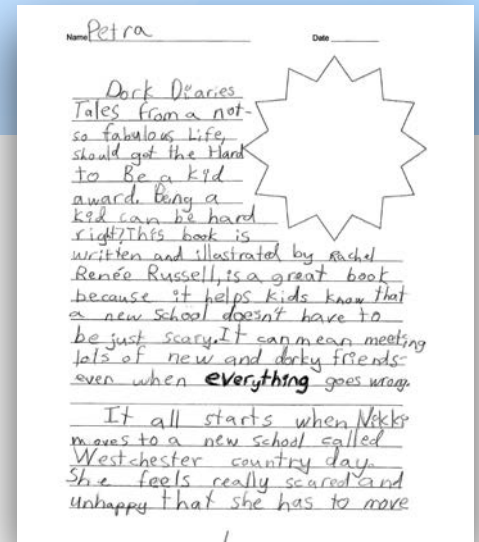 Name Petra Date
Dork Diaries
Tales from a not-
so fabulous Life,
should got the Hard
to Be a kid
award. Being a
kid can be hard
right? This book is
written and illustrated by Rachel
Renée Russell, is a great book
because it helps kids know that
a new school doesn't have to
be just scary. It can mean meeting
lots of new and dorky friends-
even when everything goes wrong.
It all starts when Nikki
moves to a new school called
Westchester country day.
She feels really scared and
unhappy that she has to move
1